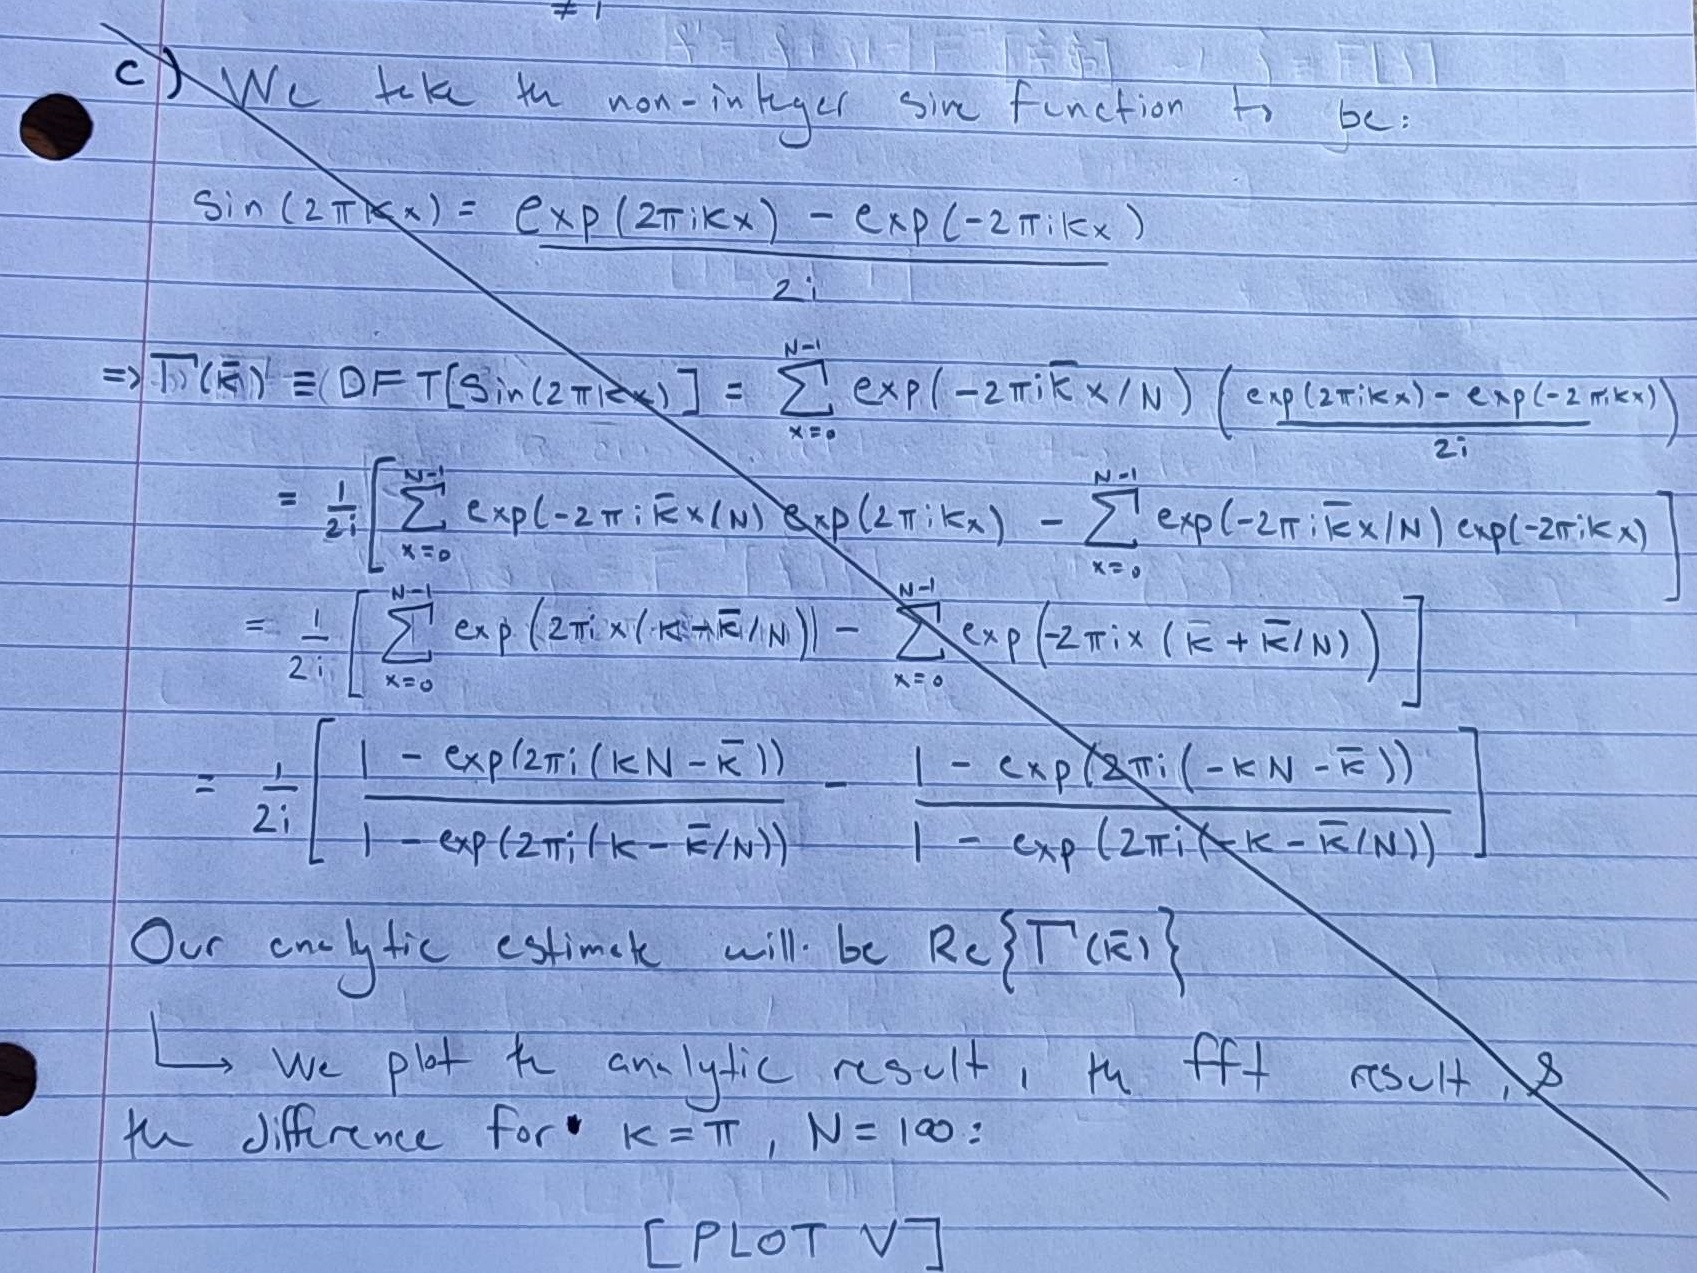 ≠ 1
c) We take the non-integer sine function to be:
Sin(2πkx) = exp(2πikx) - exp(-2πikx)
2i
=> Γ(k̄) ≡ DFT[Sin(2πkx)] = Σ exp(-2πik̄x/N) (exp(2πikx) - exp(-2πikx) / 2i)
N-1
x=0
= 1/2i [ Σ_{x=0}^{N-1} exp(-2πik̄x/N) exp(2πikx) - Σ_{x=0}^{N-1} exp(-2πik̄x/N) exp(-2πikx) ]
= 1/2i [ Σ_{x=0}^{N-1} exp(2πix(k+k̄/N)) - Σ_{x=0}^{N-1} exp(-2πix(k̄+k̄/N)) ]
= 1/2i [ 1 - exp(2πi(kN-k̄)) / 1 - exp(2πi(k-k̄/N)) - 1 - exp(2πi(-kN-k̄)) / 1 - exp(2πi(-k-k̄/N)) ]
Our analytic estimate will be Re{Γ(k̄)}
↳ We plot the analytic result, the fft result, &
the difference for k=π, N=100:
[PLOT V]